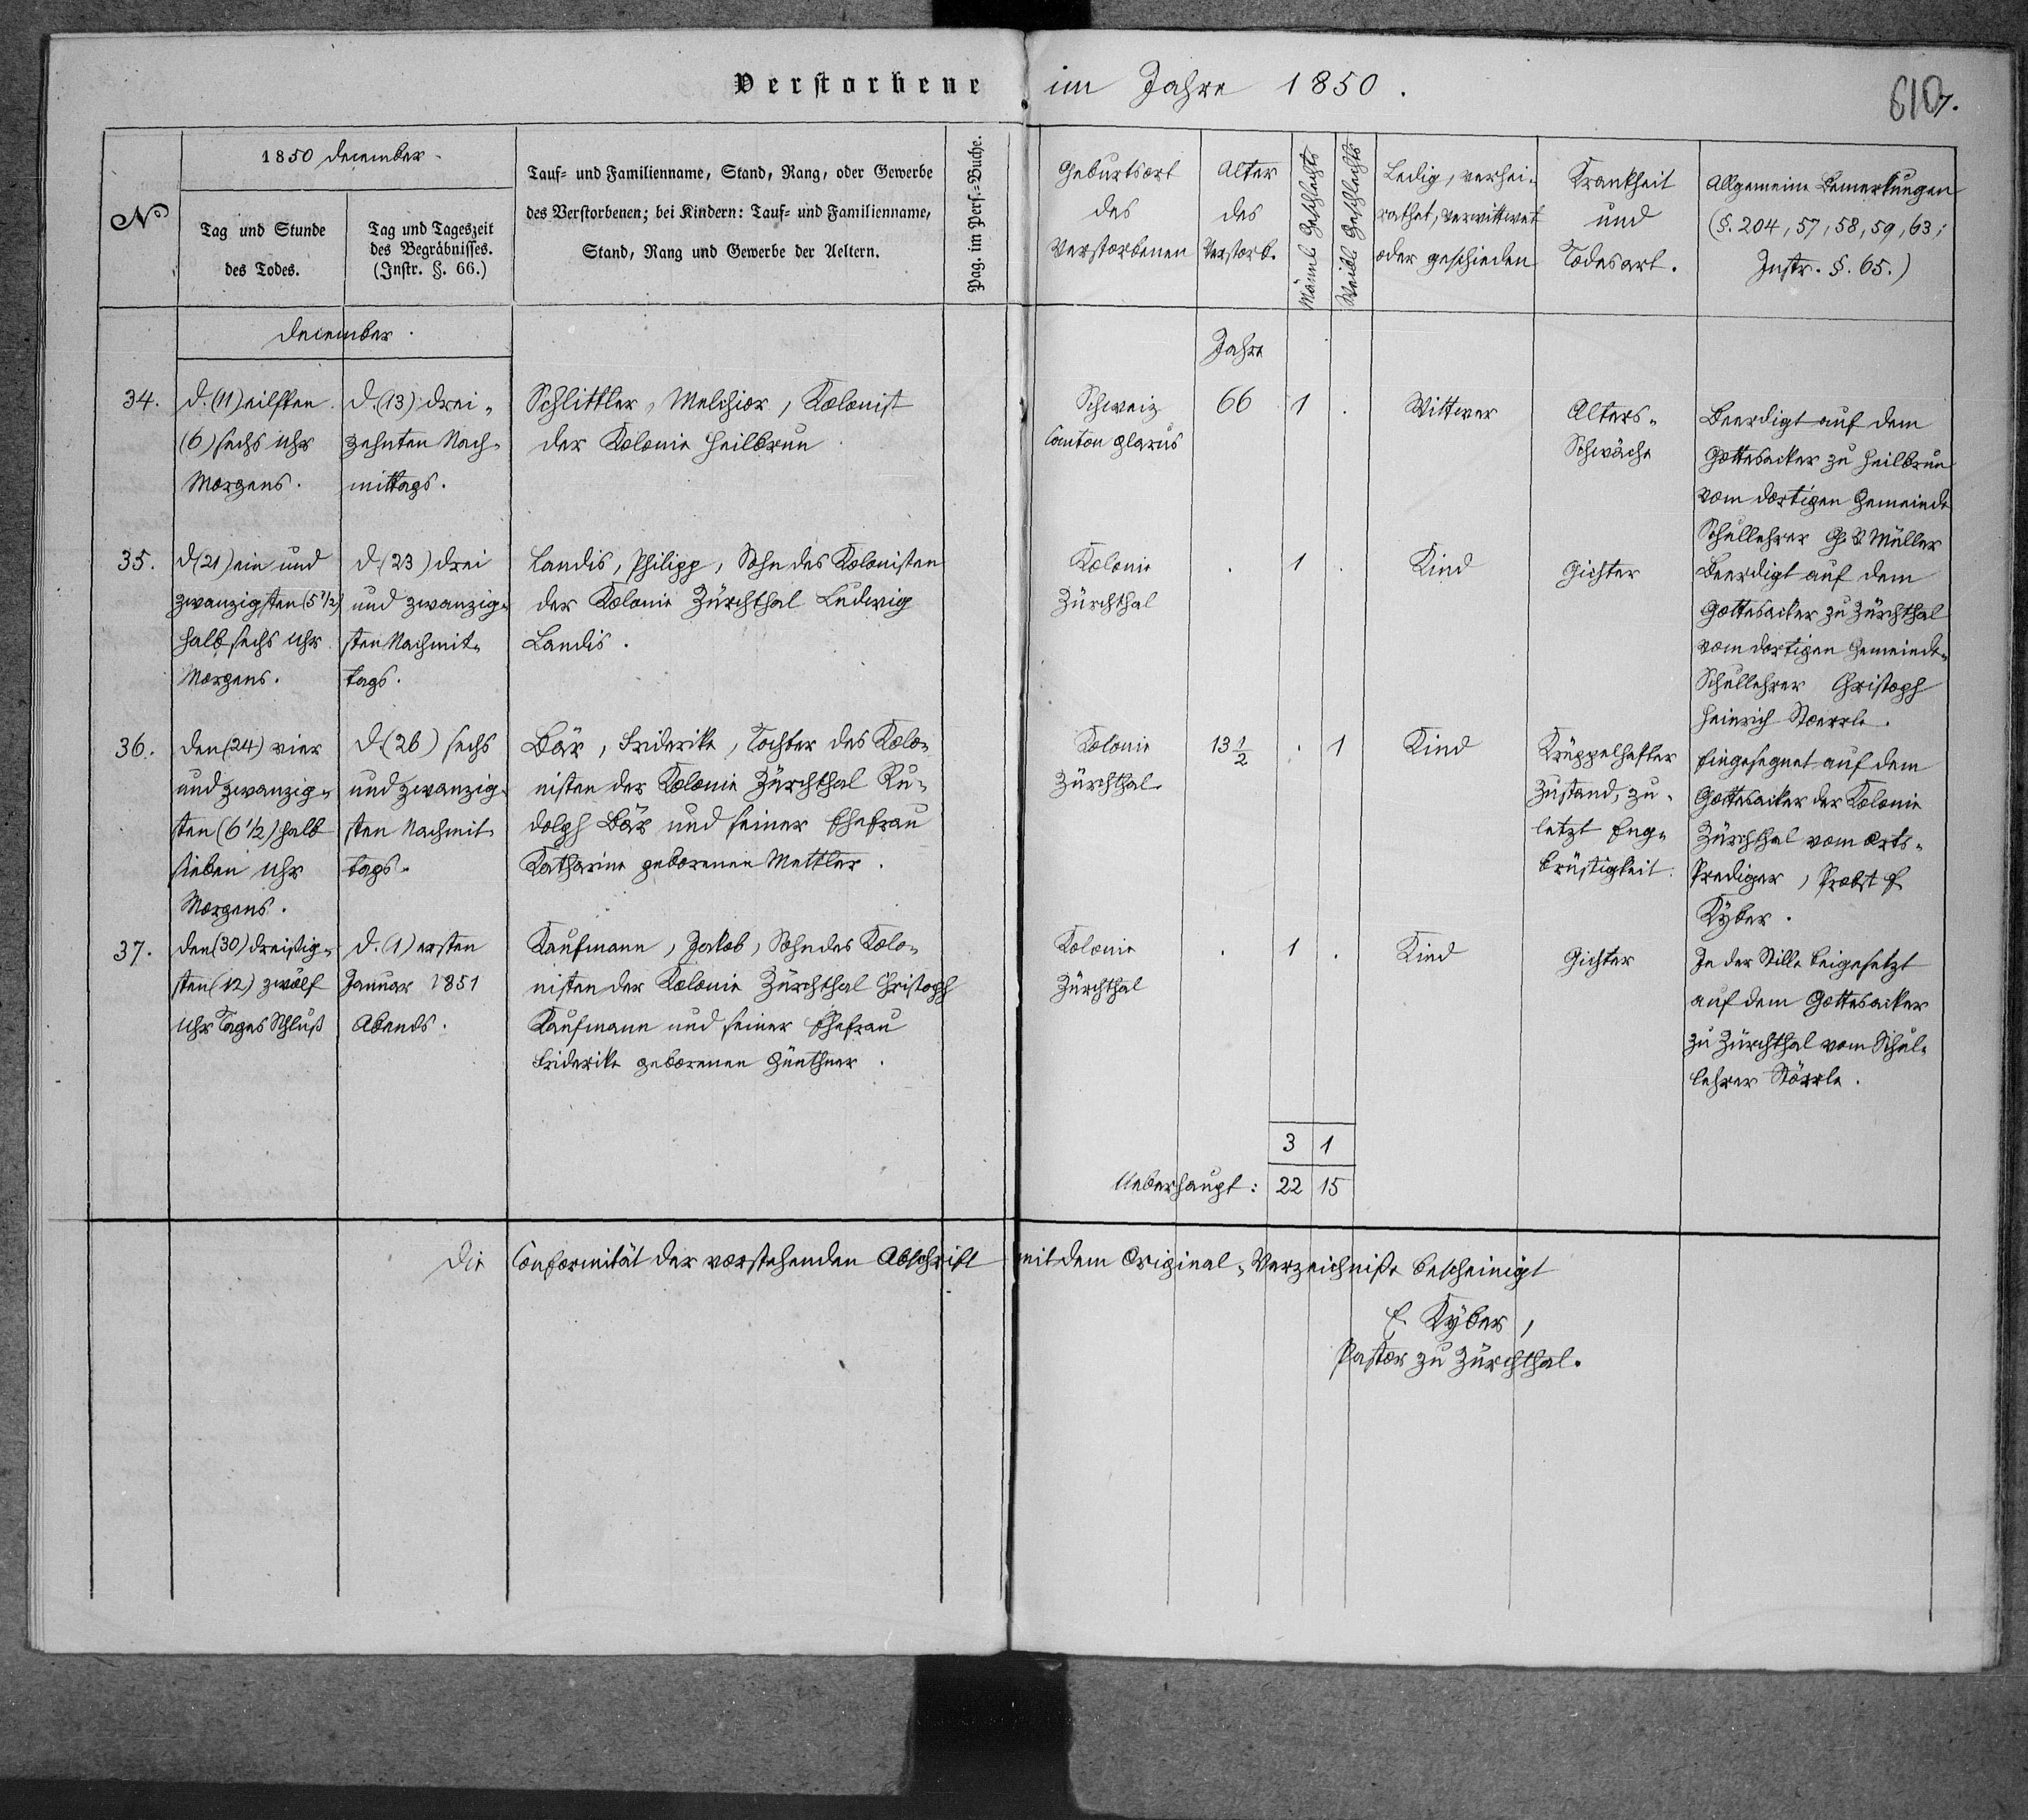 Verstorbene im Jahre 1850.
610
7.
No
1850 December.
Tag und Stunde
des Todes.
Tag und Tageszeit
des Begräbnisses.
(Instr. §. 66.)
Tauf= und Familienname, Stand, Rang, oder Gewerbe
des Verstorbenen; bei Kindern: Tauf= und Familienname,
Stand, Rang und Gewerbe der Aeltern.
Pag. im Pers.=Buche.
Geburtsort
des
Verstorbenen
Alter
des
Verstorb.
Männl. Geschlechts
Weibl. Geschlechts
Ledig, verhei-
rathet, verwittwet
oder geschieden
Krankheit
und
Todesart.
Allgemeine Bemerkungen
(§. 204, 57, 58, 59, 63;
Instr. §. 65.)
December.
Jahre
34.
d. (11) eilften
(6) sechs Uhr
Morgens.
d. (13) drei-
zehnten Nach-
mittags.
Schlittler, Melchior, Kolonist
der Kolonie Heilbrun
Schweiz
Canton Glarus
66
1
.
Wittwer
Alters-
Schwäche
Beerdigt auf dem
Gottesacker zu Heilbrun
vom dortigen Gemeinde
Schullehrer Müller
35.
d (21) ein und
zwanzigsten (5 1/2)
halb sechs Uhr
Morgens.
d (23) drei
und zwanzig-
sten Nachmit-
tags.
Landis, Philipp, Sohn des Kolonisten
der Kolonie Zürchthal Ludwig
Landis.
Kolonie
Zürchthal
.
1
.
Kind
Gichter
Beerdigt auf dem
Gottesacker zu Zürchthal
vom dortigen Gemeinde-
Schullehrer Christoph
Heinrich Stoerrle.
36.
den (24) vier
und zwanzig-
sten (6 1/2) halb
sieben Uhr
Morgens.
d (26) sechs
und zwanzig-
sten Nachmit-
tags.
Bär, Friderike, Tochter des Kolo-
nisten der Kolonie Zürchthal Ru-
dolph Bär und seiner Ehefrau
Katharine geborenen Mettler.
Kolonie
Zürchthal
13 1/2
.
1
Kind
Krüppelhafter
Zustand, zu-
letzt Eng-
brüstigkeit.
Eingesegnet auf dem
Gottesacker der Kolonie
Zürchthal vom Orts-
Prediger, Probst E.
Kÿber.
37.
den (30) dreißig-
sten (12) zwölf
Uhr Tages Schluß
d. (1) ersten
Januar 1851
Abends.
Kaufmann, Jakob, Sohn des Kolo-
nisten der Kolonie Zürchthal Christoph
Kaufmann und seiner Ehefrau
Friderike geborenen Günthner.
Kolonie
Zürchthal
.
1
.
Kind
Gichter
In der Stille beigesetzt
auf dem Gottesacker
zu Zürchthal vom Schul-
lehrer Störrle.
3 1
Ueberhaupt: 22 15
Die Conformität der vorstehenden Abschrift mit dem Original-Verzeichniße bescheinigt
E. Kÿber,
Pastor zu Zürchthal.